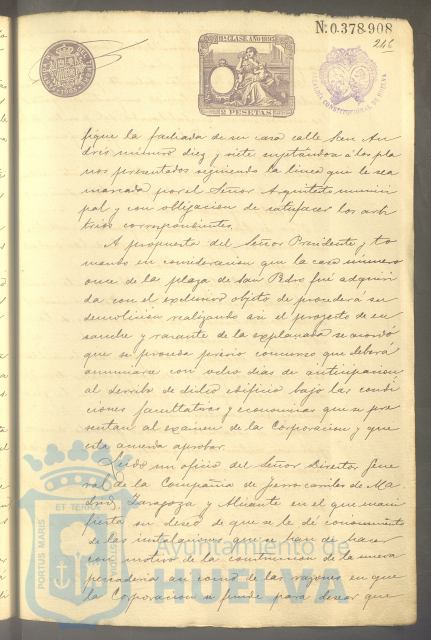 Nº 0.378.908
246
11ª CLASE AÑO 1895
2 PESETAS
ALCALDIA CONSTITUCIONAL DE HUELVA
fique la fachada de su casa calle San An
drés número diez y siete sujetándose á los pla
nos presentados siguiendo la linea que le sea
marcada por el Señor Arquitecto munici
pal y con obligacion de satisfacer los arbi
trios correspondientes.
A propuesta del Señor Presidente y to
mando en consideracion que la casa número
once de la plaza de San Pedro fué adquiri
da con el exclusivo objeto de proceder á su
demolicion realizando asi el proyecto de en
sanche y rasante de la explanada se acordó
que se proceda previo concurso que deberá
anunciarse con ocho dias de anticipacion
al derribo de dicho edificio bajo las condi
ciones facultativas y economicas que se pre
sentan al examen de la Corporacion y que
esta acuerda aprobar.
Leido un oficio del Señor Director Gene
ral de la Compañia de ferro-carriles de Ma
drid, Zaragoza y Alicante en el que mani
fiesta su deseo de que se le dé conocimiento
de las instalaciones que se han de hacer
con motivo de la construccion de la nueva
pescaderia asi como de las razones en que
la Corporacion se funde para desear que
PORTUS MARIS
ET TERRAE
Ayuntamiento de
HUELVA